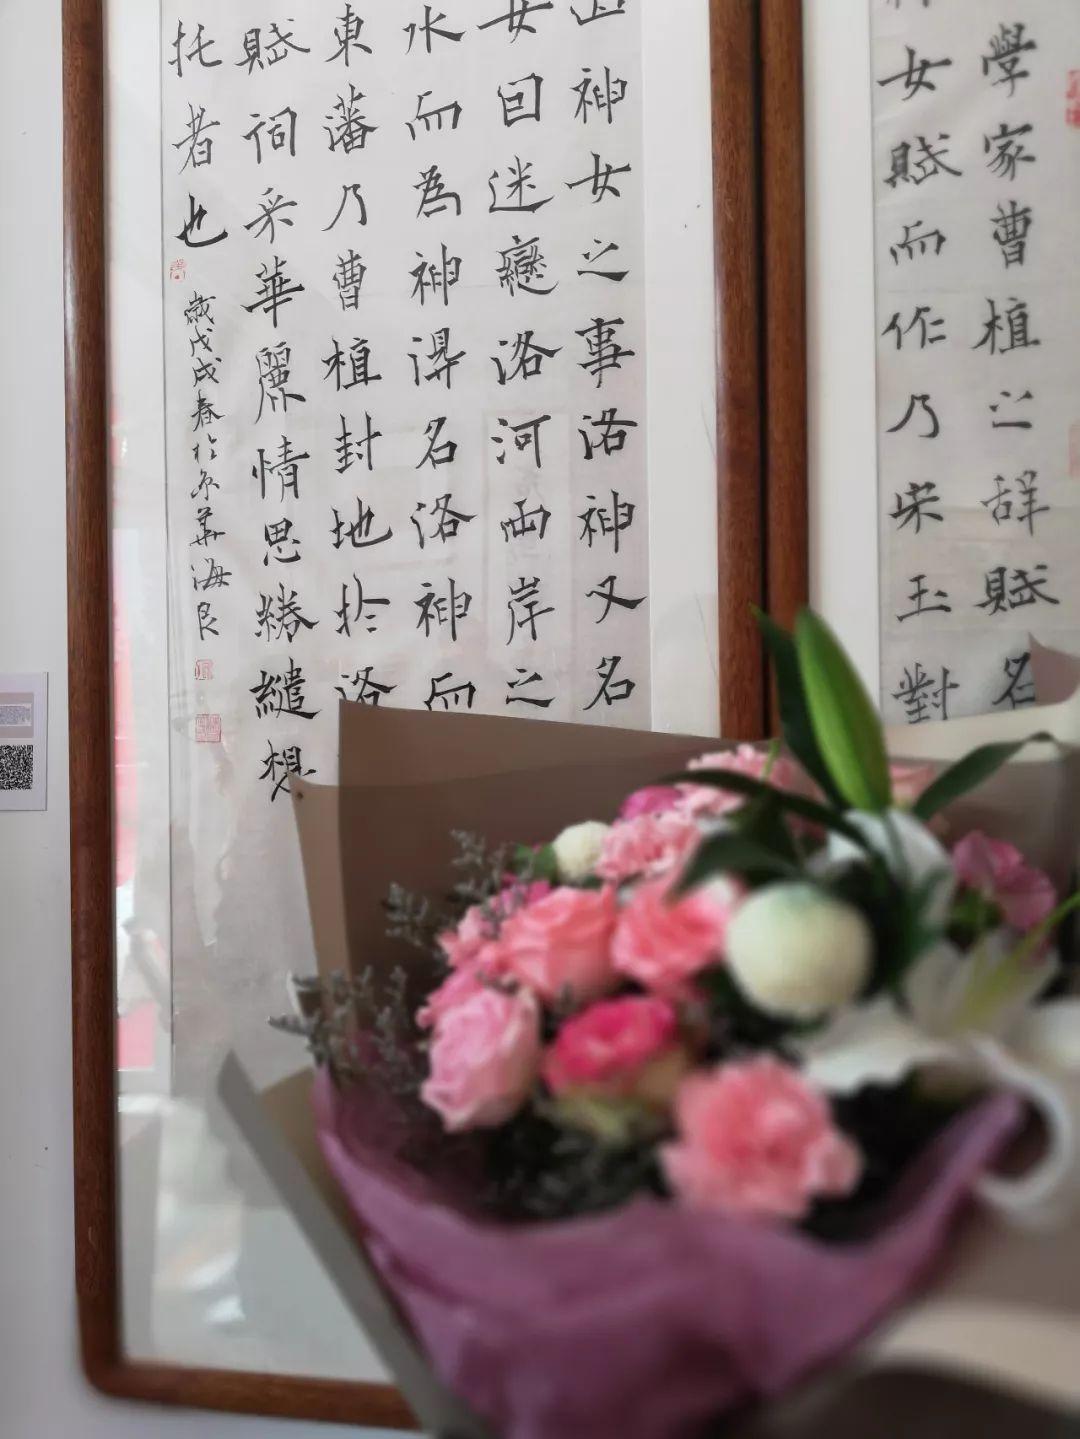 學家曹植之辞賦名
女賦而作乃宋玉對
神女之事洛神又名
女回迷戀洛河兩岸之
水而為神淂名洛神而
東藩乃曹植封地於洛
賦词采華麗情思綣繾想
托者也
歲戊戌春於京華海良